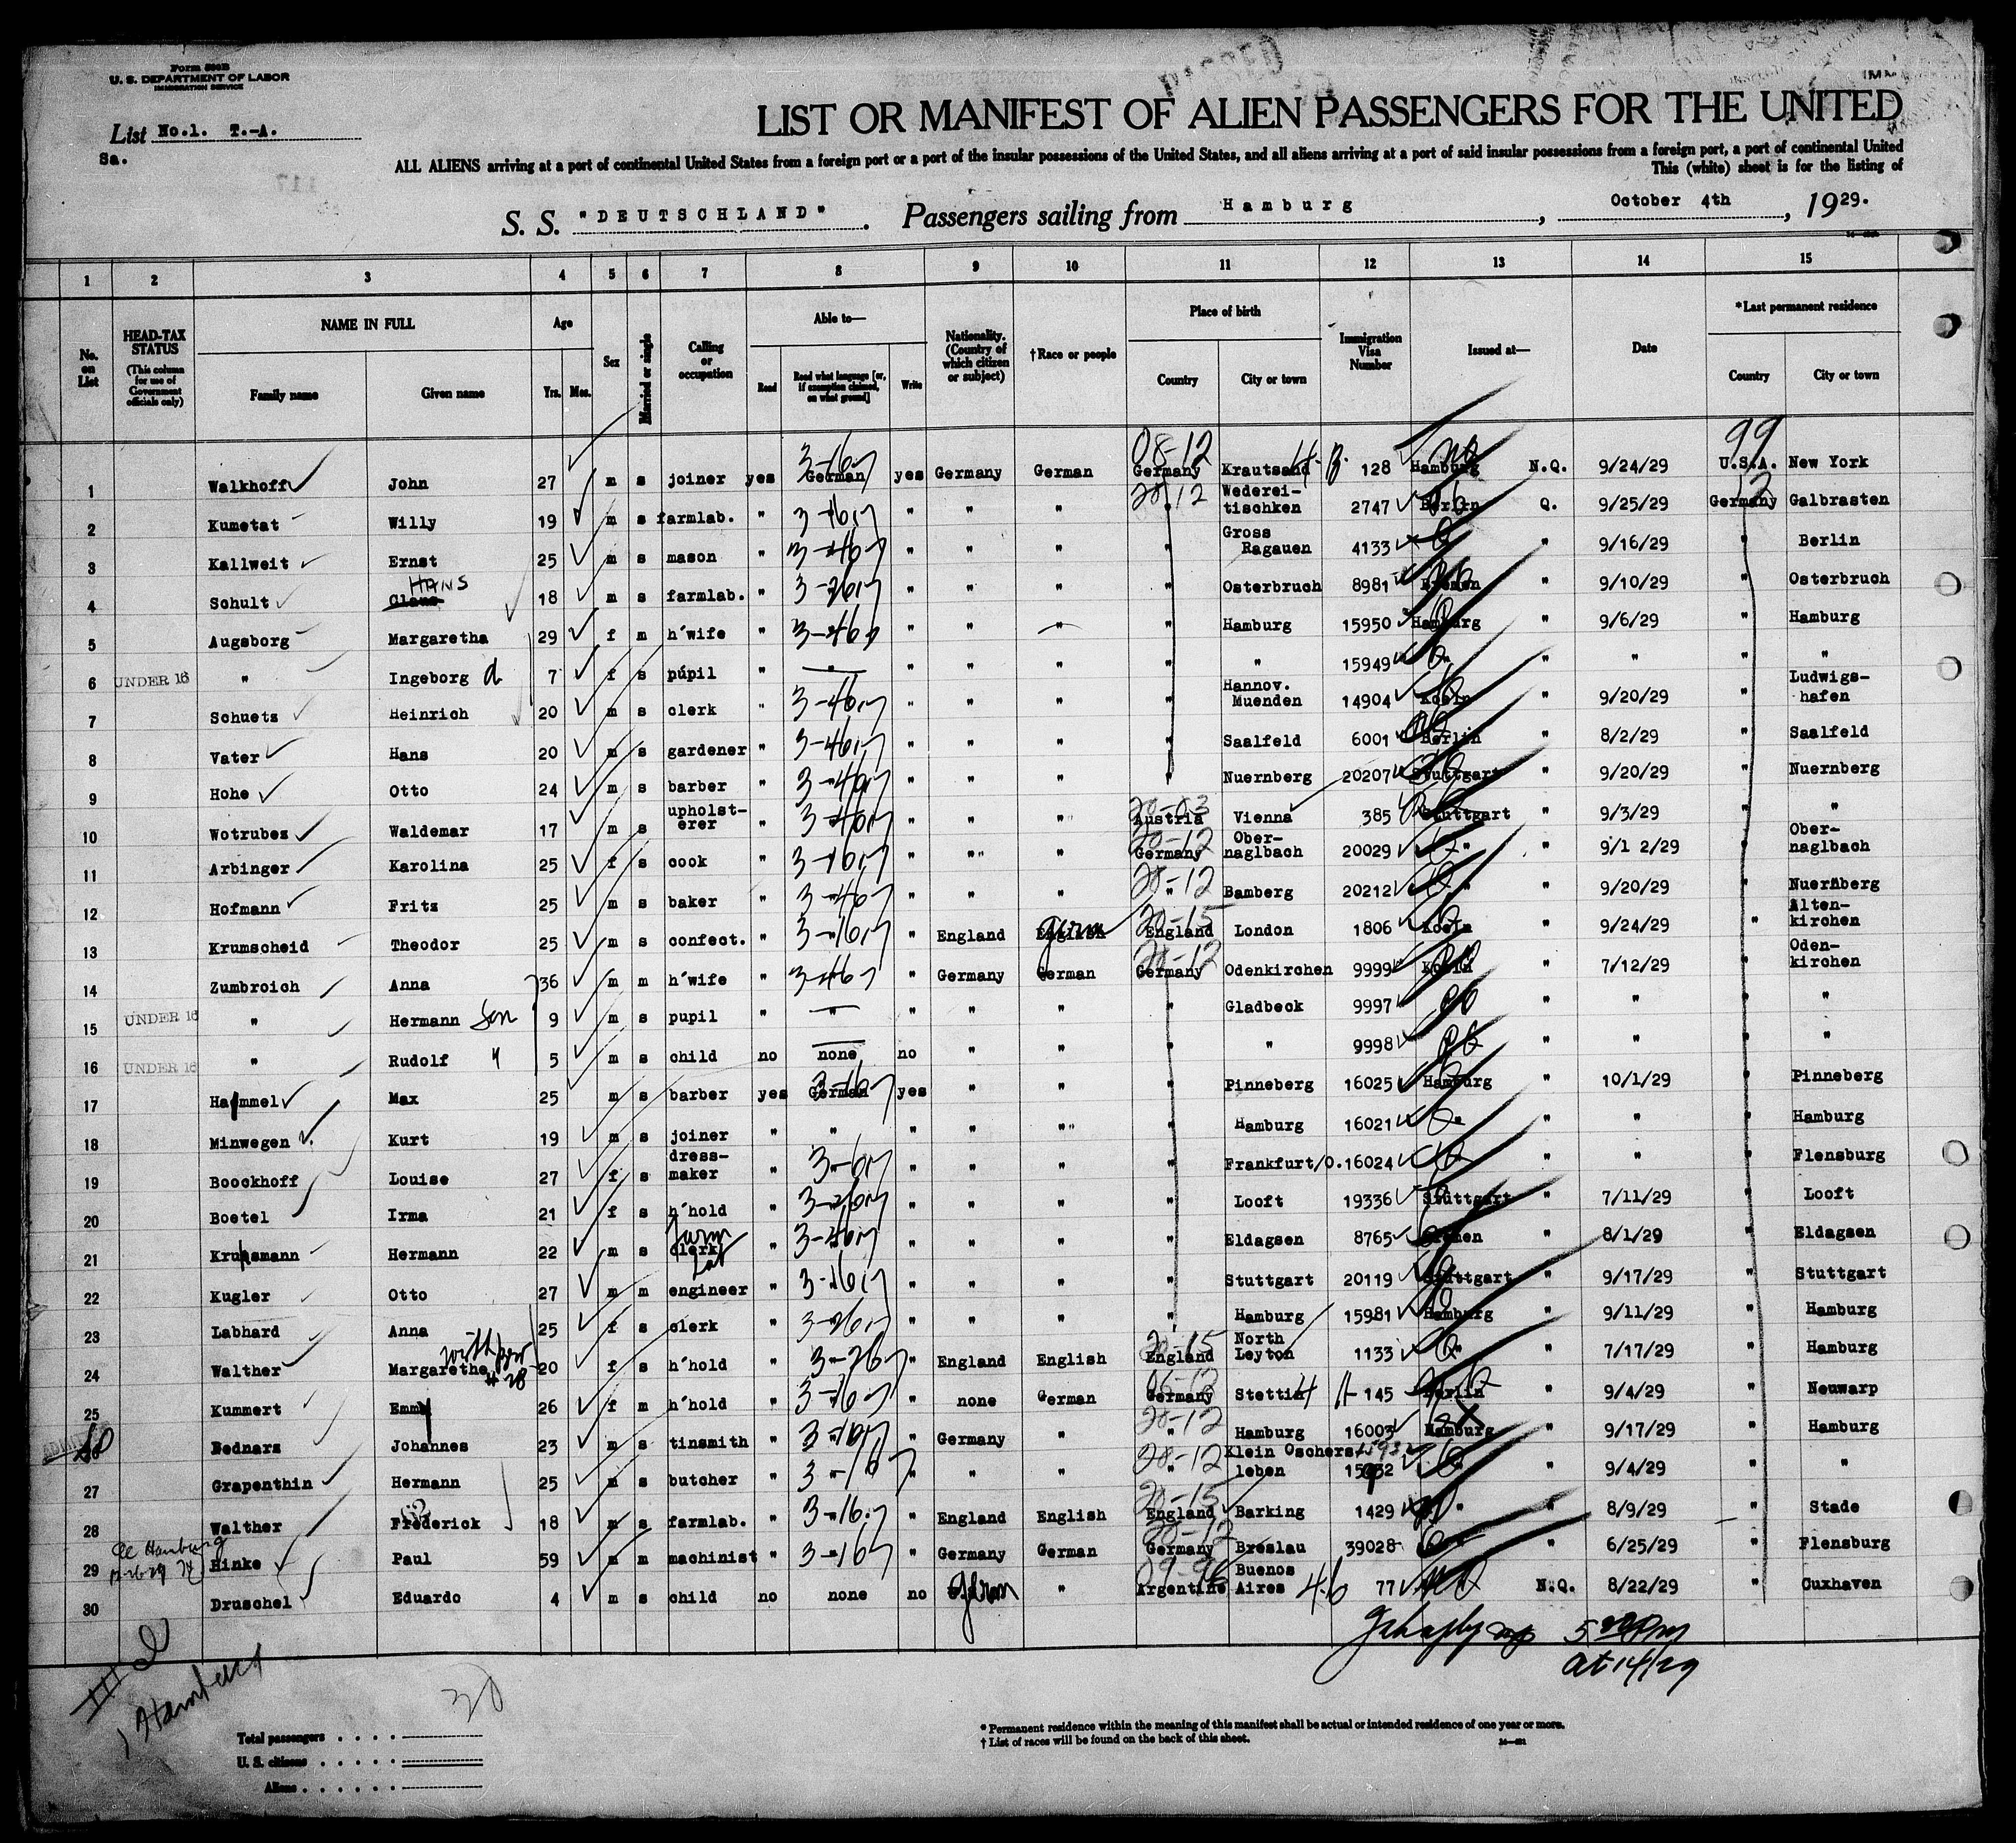 Form 500B
U. S. DEPARTMENT OF LABOR
IMMIGRATION SERVICE
PASSED
List No.1. T.-A.
Sa.
117
LIST OR MANIFEST OF ALIEN PASSENGERS FOR THE UNITED
ALL ALIENS arriving at a port of continental United States from a foreign port or a port of the insular possessions of the United States, and all aliens arriving at a port of said insular possessions from a foreign port, a port of continental United
This (white) sheet is for the listing of
S. S. "DEUTSCHLAND". Passengers sailing from Hamburg, October 4th, 1929.
1 2 3 4 5 6 7 8 9 10 11 12 13 14 15
No. on List
HEAD-TAX STATUS (This column for use of Government officials only)
NAME IN FULL Family name Given name
Age Yrs. Mos.
Sex
Married or single
Calling or occupation
Able to— Read Read what language [or, if exemption claimed, on what ground] Write
Nationality. (Country of which citizen or subject)
†Race or people
Place of birth Country City or town
Immigration Visa Number
Issued at—
Date
*Last permanent residence Country City or town
1 Walkhoff John 27 m s joiner yes German yes Germany German 08-12 Germany Krautsand 128 Hamburg N.Q. 9/24/29 99 U.S.A. New York
2 Kumetat Willy 19 m s farmlab. " " " " " 20-12 " Wederei-tischken 2747 Berlin Q. 9/25/29 12 Germany Galbrasten
3 Kallweit Ernst 25 m s mason " " " " " " Gross Ragauen 4133 " " 9/16/29 " Berlin
4 Schult Claus HANS 18 m s farmlab. " " " " " " Osterbruch 8981 Bremen " 9/10/29 " Osterbruch
5 Augsborg Margaretha 29 f m h'wife " " " " " " Hamburg 15950 Hamburg " 9/6/29 " Hamburg
6 UNDER 16 " Ingeborg d 7 f s pupil " " " " " " " 15949 " " " " "
7 Schuetz Heinrich 20 m s clerk " " " " " " Hannov. Muenden 14904 Koeln " 9/20/29 " Ludwigs-hafen
8 Vater Hans 20 m s gardener " " " " " " Saalfeld 6001 Berlin " 8/2/29 " Saalfeld
9 Hohe Otto 24 m s barber " " " " " " Nuernberg 20207 Stuttgart " 9/20/29 " Nuernberg
10 Wotrubez Waldemar 17 m s upholst-erer " " " " " 20-03 Austria Vienna 385 Stuttgart " 9/3/29 " "
11 Arbinger Karolina 25 f s cook " " " " " 20-12 Germany Ober-naglbach 20029 " " 9/1 2/29 " Ober-naglbach
12 Hofmann Fritz 25 m s baker " " " " " 20-12 " Bamberg 20212 " " 9/20/29 " Nuernberg
13 Krumscheid Theodor 25 m s confect. " " " England English Germ 20-15 England London 1806 Koeln " 9/24/29 " Alten-kirchen
14 Zumbroich Anna 36 m m h'wife " " " Germany German 20-12 Germany Odenkirchen 9999 Koeln " 7/12/29 " Oden-kirchen
15 UNDER 16 " Hermann Son 9 m s pupil " " " " " " Gladbeck 9997 " " " " "
16 UNDER 16 " Rudolf " 5 m s child no none no " " " " 9998 " " " " "
17 Hammel Max 25 m s barber yes German yes " " " Pinneberg 16025 Hamburg " 10/1/29 " Pinneberg
18 Minwegen Kurt 19 m s joiner " " " " " " Hamburg 16021 " " " " Hamburg
19 Boockhoff Louise 27 f s dress-maker " " " " " " Frankfurt/O. 16024 " " " " Flensburg
20 Boetel Irma 21 f s h'hold " " " " " " Looft 19336 Stuttgart " 7/11/29 " Looft
21 Kruhsmann Hermann 22 m s clerk farm Lab " " " " " " Eldagsen 8765 Bremen " 8/1/29 " Eldagsen
22 Kugler Otto 27 m m engineer " " " " " " Stuttgart 20119 Stuttgart " 9/17/29 " Stuttgart
23 Labhard Anna 25 f s clerk " " " " " " Hamburg 15981 Hamburg " 9/11/29 " Hamburg
24 Walther Margarethe with bro # 28 20 f s h'hold " " " England English 20-15 England North Leyton 1133 " " 7/17/29 " Hamburg
25 Kummert Emmy 26 f m h'hold " " " none German Germany Stettin 145 Berlin " 9/4/29 " Neuwarp
26 Bednarz Johannes 23 m s tinsmith " " " Germany " 20-12 " Hamburg 16003 Hamburg " 9/17/29 " Hamburg
27 Grapenthin Hermann 25 m s butcher " " " " " 20-12 " Klein Oschers-leben 15932 " " 9/4/29 " "
28 Walther Frederick 18 m s farmlab. " " " England English 20-15 England Barking 1429 " " 8/9/29 " Stade
29 Hinke Paul 59 m m machinist " " " Germany German 20-12 Germany Breslau 39028 " " 6/25/29 " Flensburg
30 Druschel Eduardo 4 m s child no none no Germ " 09-96 Argentine Buenos Aires 77 N.Q. 8/22/29 " Cuxhaven
5 00 PM
Oct 14/29
30
Total passengers
U. S. citizens
Aliens
* Permanent residence within the meaning of this manifest shall be actual or intended residence of one year or more.
† List of races will be found on the back of this sheet.